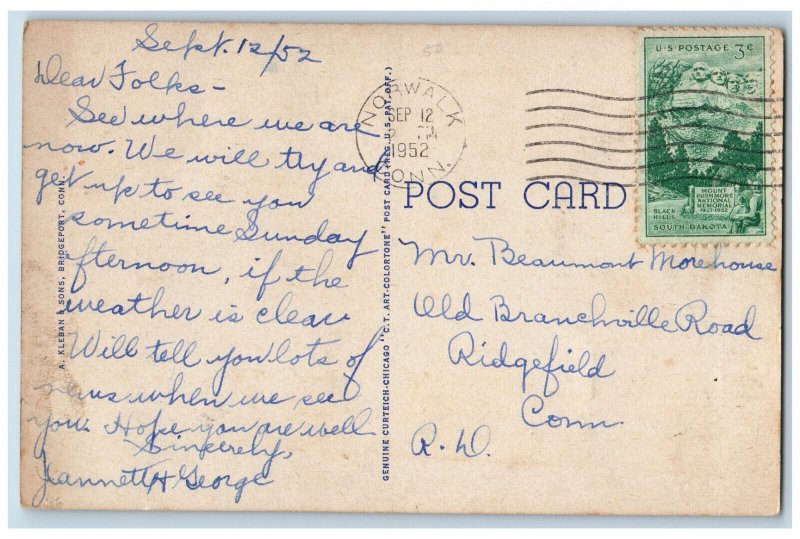 Sept. 12/52
Dear Folks -
See where we are
now. We will try and
get up to see you
sometime Sunday
afternoon, if the
weather is clear
Will tell you lots of
news when we see
you. Hope you are well
Sincerely,
Jeannett & George
A. KLEBAN & SONS, BRIDGEPORT, CONN.
GENUINE CURTEICH-CHICAGO "C.T. ART-COLORTONE" POST CARD (REG. U.S. PAT. OFF.)
50
NORWALK
SEP 12
1952
CONN.
POST CARD
U.S. POSTAGE 3¢
MOUNT
RUSHMORE
NATIONAL
MEMORIAL
1927-1952
BLACK
HILLS
SOUTH DAKOTA
Mr. Beaumont Morehouse
Old Branchville Road
Ridgefield
Conn.
R.D.